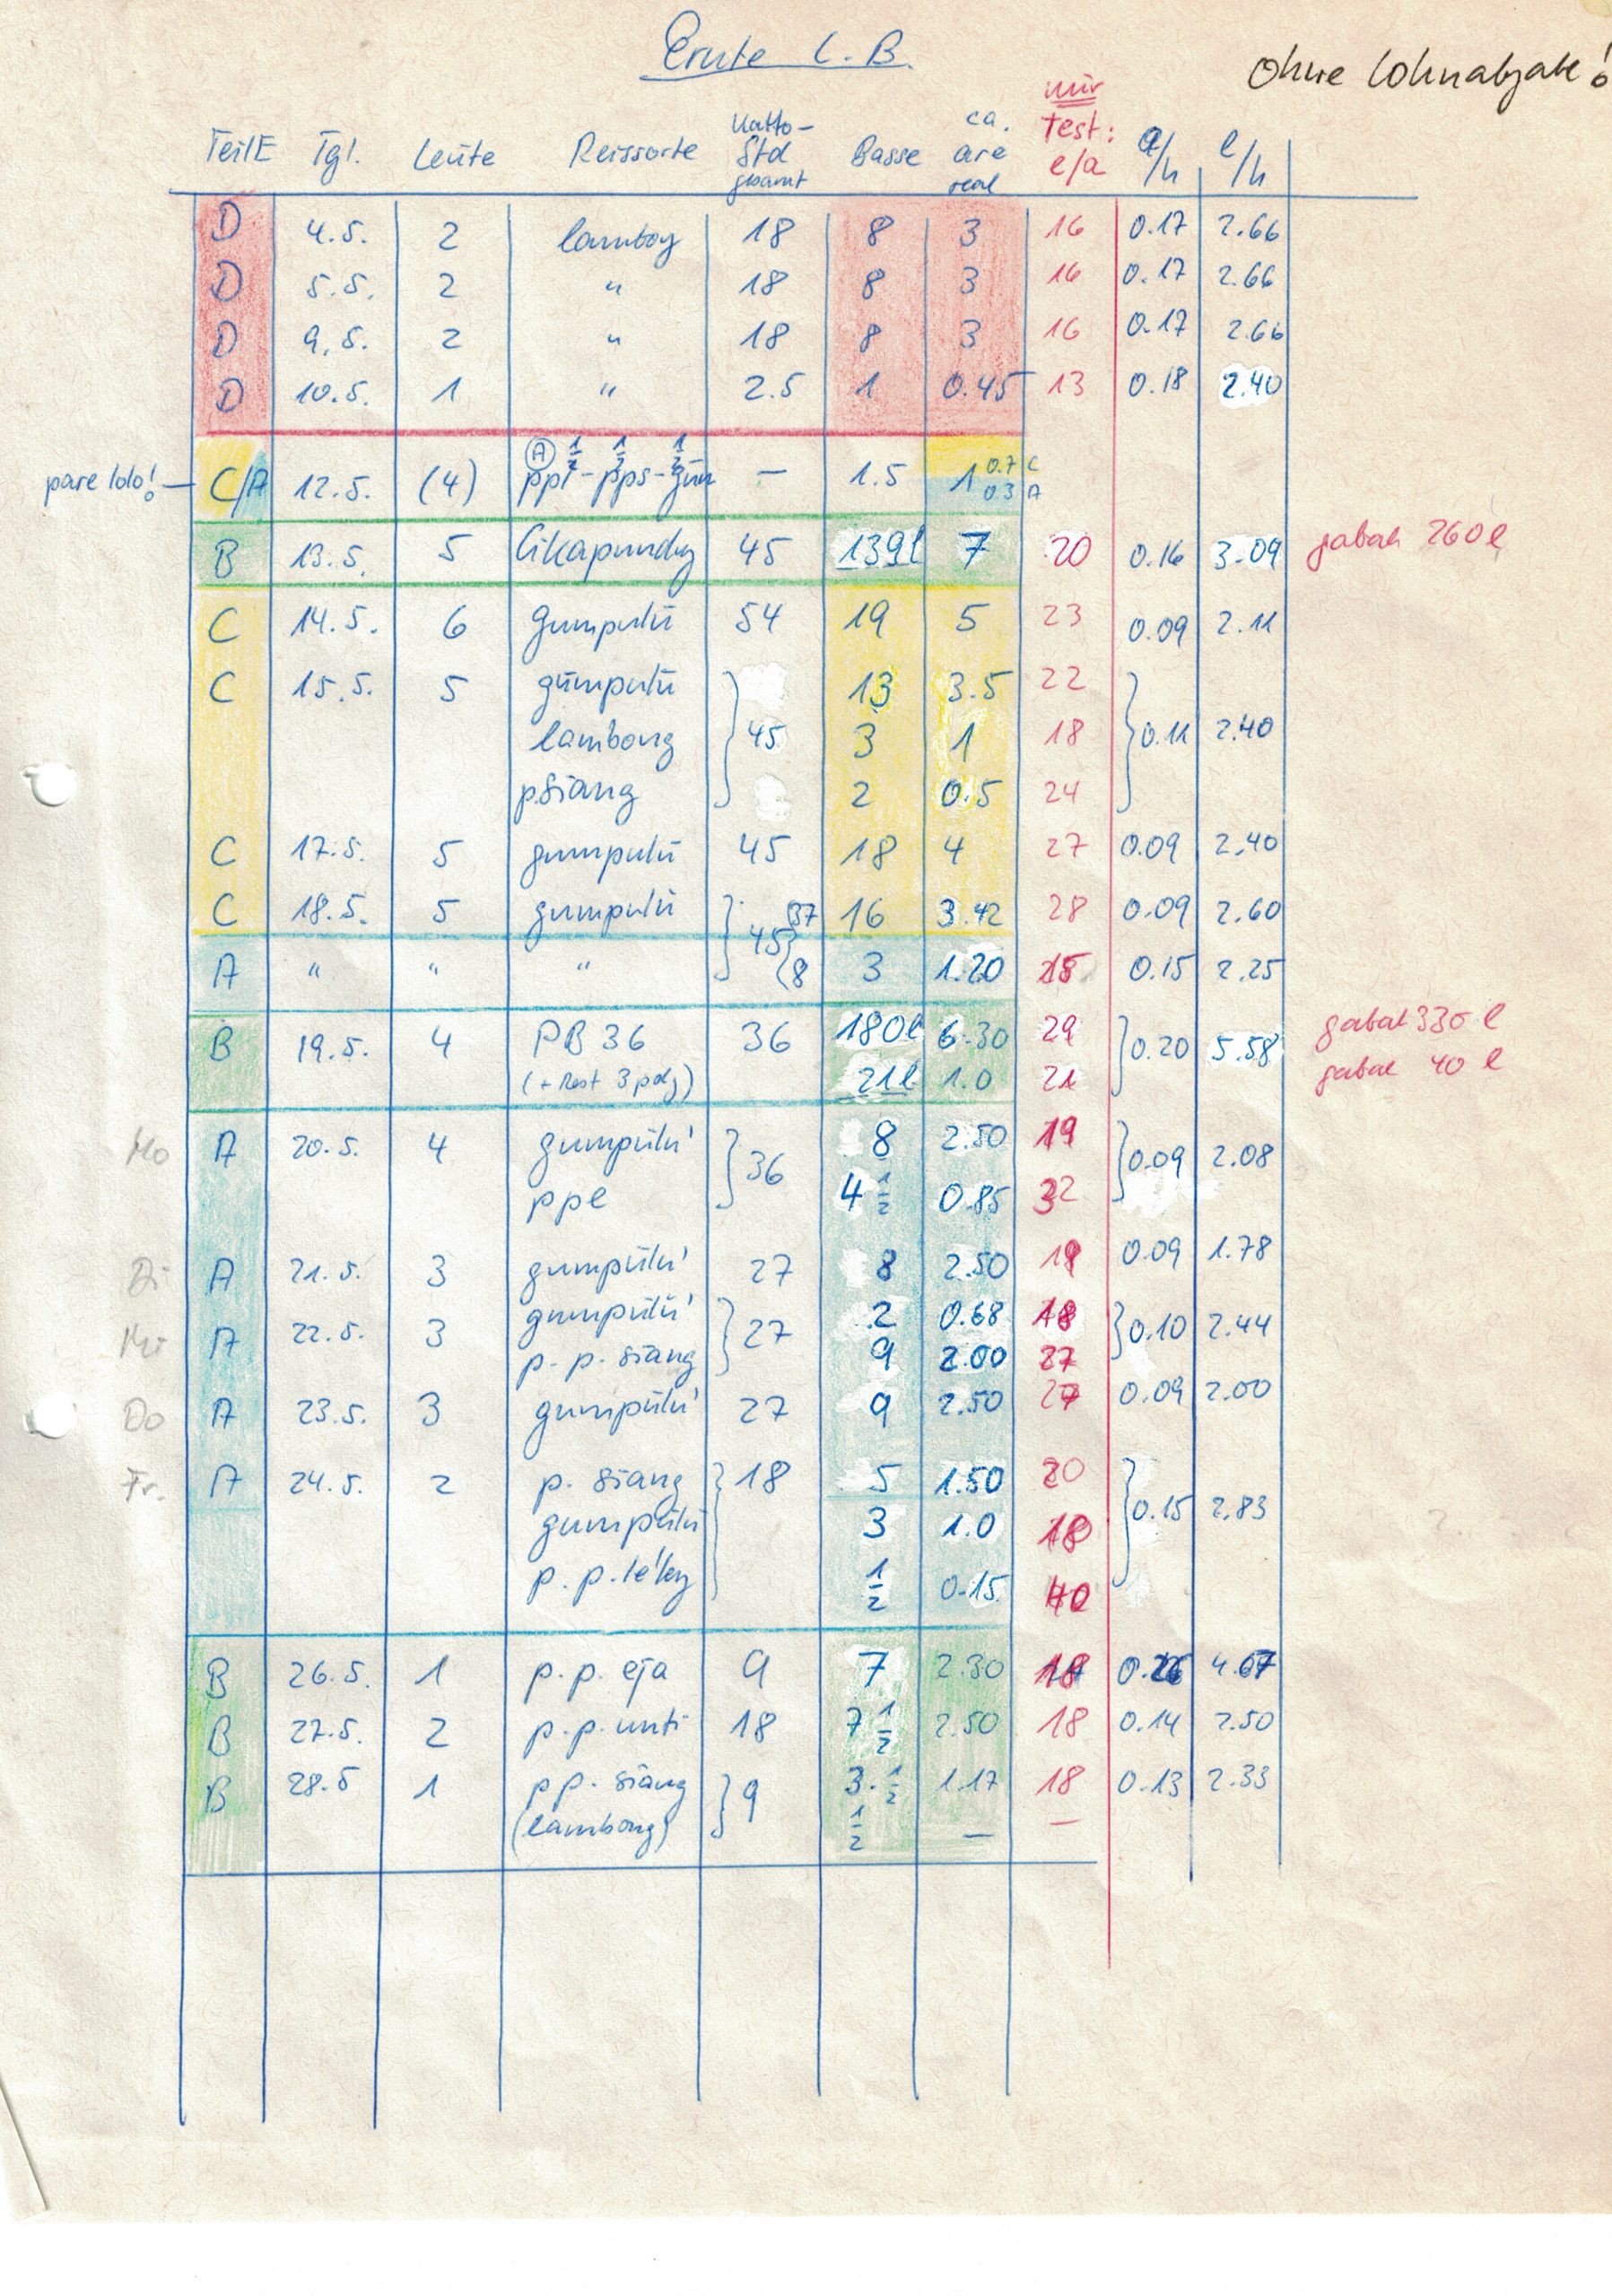 Ernte L.B.
Ohne Lohnabgabe!
TeilE Tgl. Leute Reissorte Netto-Std gesamt Basse ca. are real nur Test: l/a a/h l/h
D 4.5. 2 lambog 18 8 3 16 0.17 2.66
D 5.5. 2 " 18 8 3 16 0.17 2.66
D 9.5. 2 " 18 8 3 16 0.17 2.66
D 10.5. 1 " 2.5 1 0.45 13 0.18 2.40
pare lolo! C/A 12.5. (4) (A) 1/2 1/2 1/2 ppl-pps-gum — 1.5 1 0.7 C 0.3 A
B 13.5. 5 Cikapundug 45 139l 7 20 0.16 3.09 gabah 260l
C 14.5. 6 gumpulū 54 19 5 23 0.09 2.11
C 15.5. 5 gumpulū 45 13 3.5 22 0.11 2.40
lambong 3 1 18
p.siang 2 0.5 24
C 17.5. 5 gumpulū 45 18 4 27 0.09 2.40
C 18.5. 5 gumpulū 45 37 16 3.42 28 0.09 2.60
A " " " 8 3 1.20 15 0.15 2.25
B 19.5. 4 PB 36 36 180l 6.30 29 0.20 5.58 gabah 330 l
(+ Rest 3 pdg) 21l 1.0 21 gabah 40 l
Mo A 20.5. 4 gumpulū 36 8 2.50 19 0.09 2.08
ppl 4 1/2 0.85 32
Di A 21.5. 3 gumpulū 27 8 2.50 19 0.09 1.78
Mi A 22.5. 3 gumpulū 27 2 0.68 18 0.10 2.44
p.p. siang 9 2.00 27
Do A 23.5. 3 gumpulū 27 9 2.50 0.09 2.00
Fr. A 24.5. 2 p. siang 18 5 1.50 20 0.15 2.83
gumpulū 3 1.0 18
p.p. le'leg 1/2 0.15 40
B 26.5. 1 p.p. eja 9 7 2.30 18 0.26 4.67
B 27.5. 2 p.p. unti 18 7 1/2 2.50 18 0.14 2.50
B 28.5 1 pp. siang 9 3. 1/2 1.17 18 0.13 2.33
(lambong) 1/2 — —